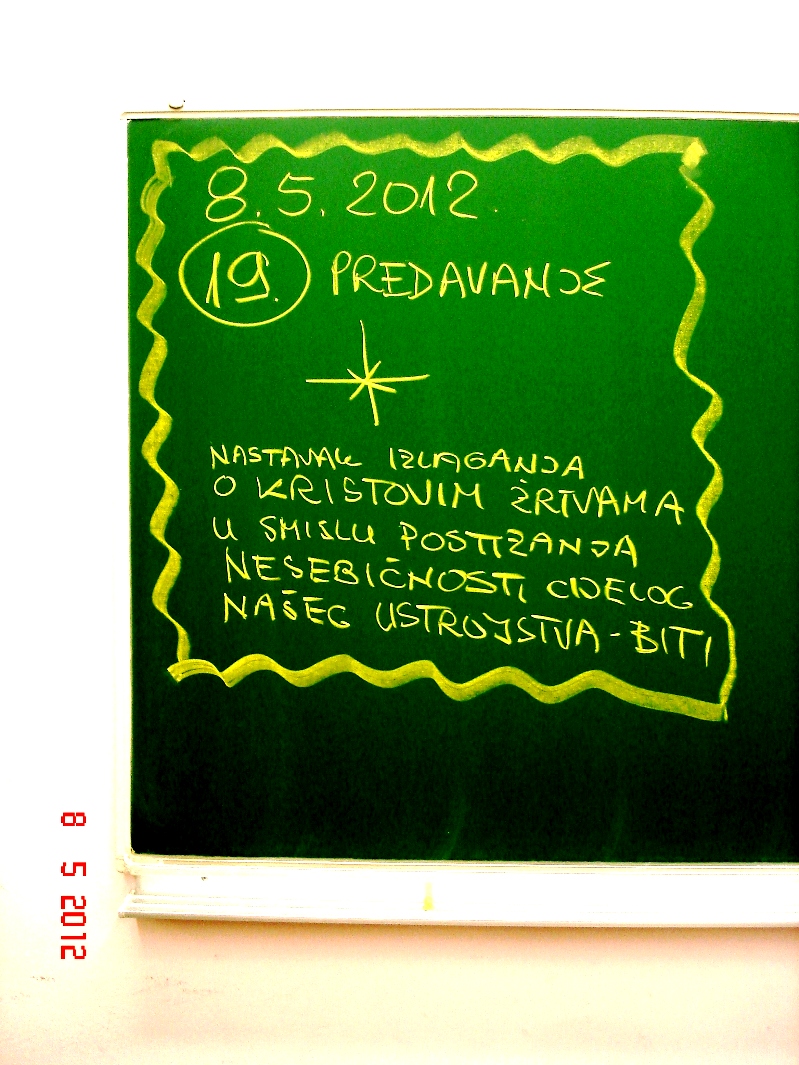 8.5.2012.
19. PREDAVANJE
NASTAVAK IZLAGANJA
O KRISTOVIM ŽRTVAMA
U SMISLU POSTIZANJA
NESEBIČNOSTI CIJELOG
NAŠEG USTROJSTVA-BITI
8 5 2012